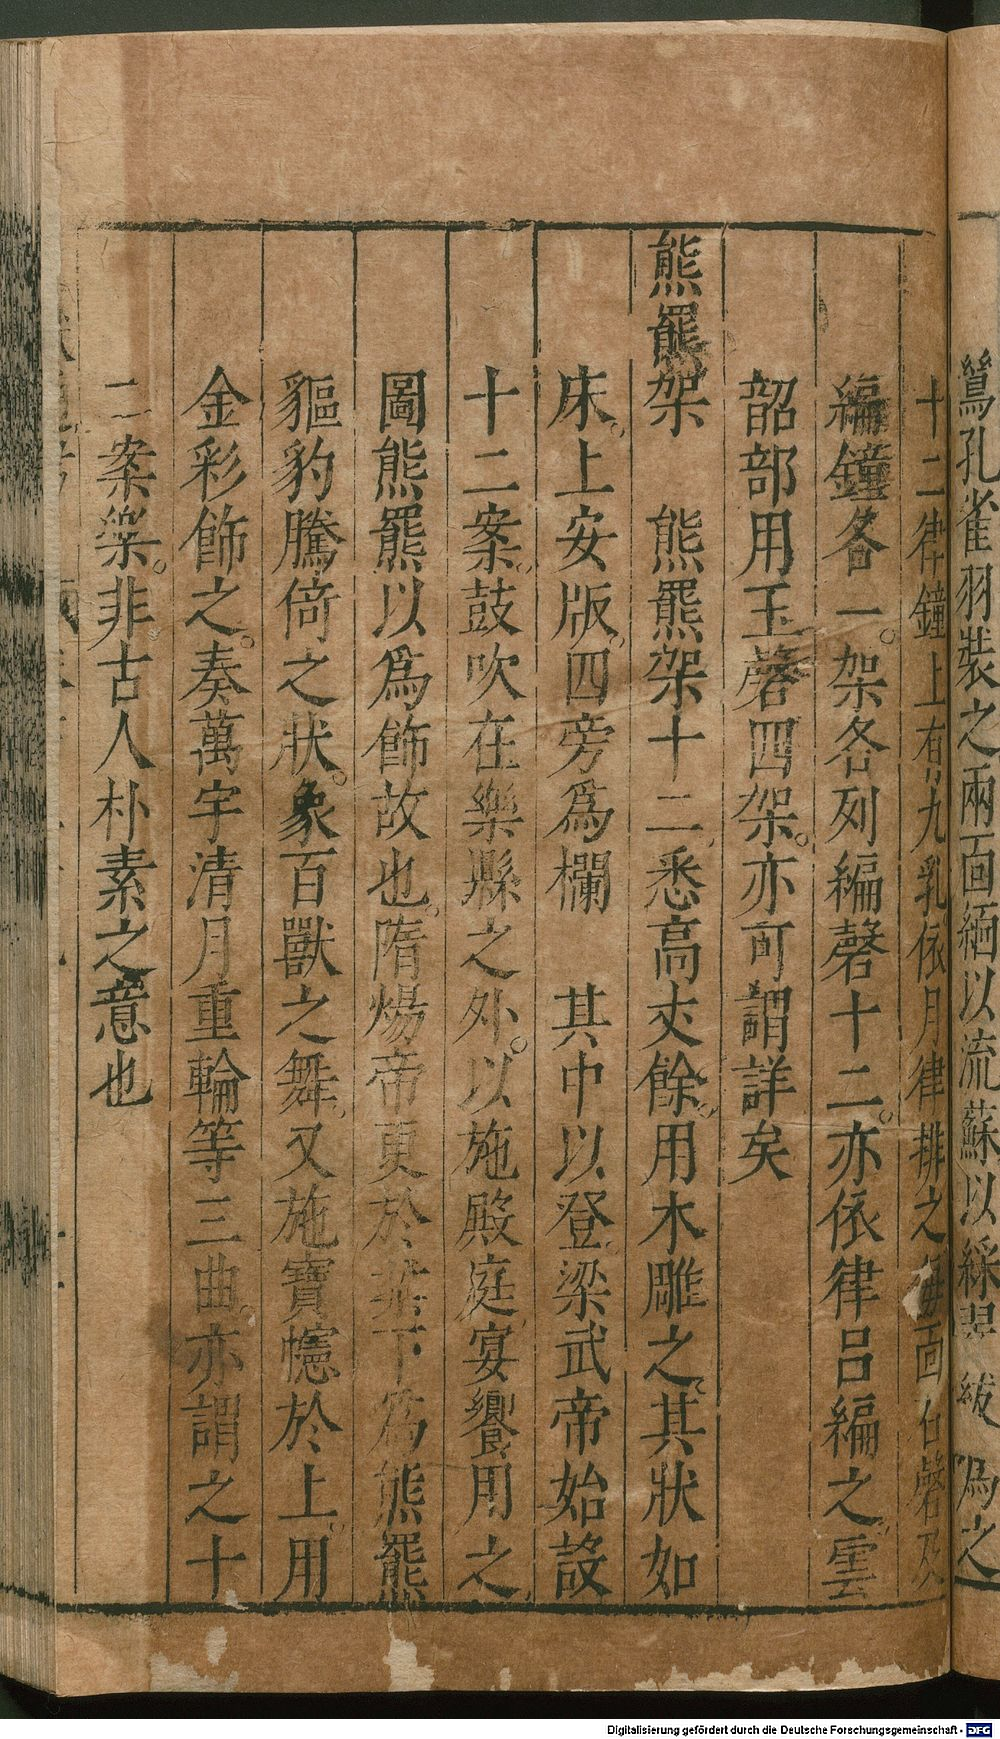 鷥孔雀羽裝之兩面緬以流蘇以綵翠紱爲之
十二律鐘上有九乳依月律排之每面石磬及
編鐘各一架各列編磬十二亦依律呂編之雲
韶部用玉磬四架亦可謂詳矣
熊羆架 熊羆架十二悉高𠀋餘用木雕之其狀如
床上安版四旁爲欄 其中以登梁武帝始設
十二案鼓吹在樂縣之外以施殿庭宴饗用之
圖熊羆以爲飾故也隋煬帝更於案下爲熊羆
貙豹騰倚之狀象百獸之舞又施寶幰於上用
金彩飾之奏萬宇清月重輪等三曲亦謂之十
二案樂非古人朴素之意也
Digitalisierung gefördert durch die Deutsche Forschungsgemeinschaft - DFG